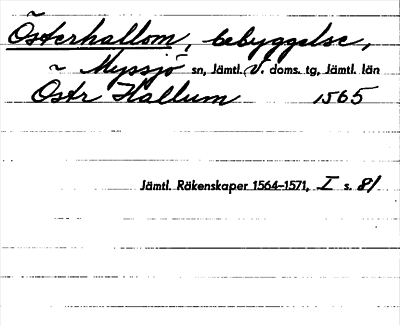 Österhallom, bebyggelse,
~ Myssjö sn, Jämtl. V. doms. tg, Jämtl. län
Ostr Hallum 1565
Jämtl. Räkenskaper 1564–1571, I s. 81